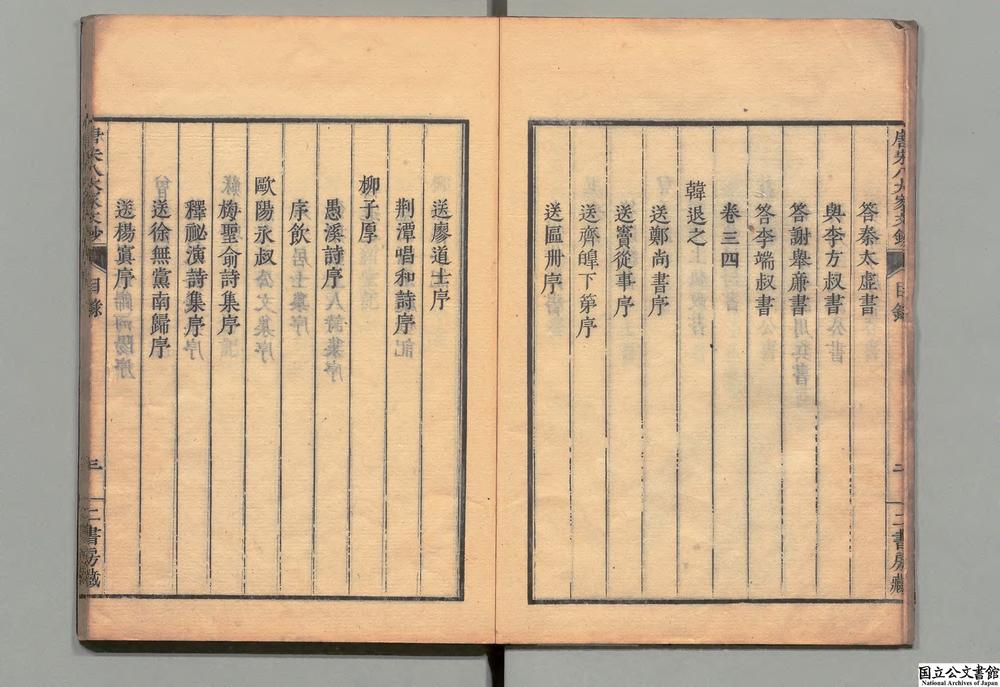 唐宋八大家文鈔 目錄 二 二書房藏
答秦太虛書
與李方叔書
答謝舉廉書
答李端叔書
卷三四
韓退之
送鄭尚書序
送竇從事序
送齊皥下第序
送區冊序
送廖道士序
荆潭唱和詩序
柳子厚
愚溪詩序
序飲
歐陽永叔
梅聖俞詩集序
釋祕演詩集序
送徐無黨南歸序
送楊寘序
唐宋八大家文鈔 目錄 三 二書房藏
国立公文書館
National Archives of Japan